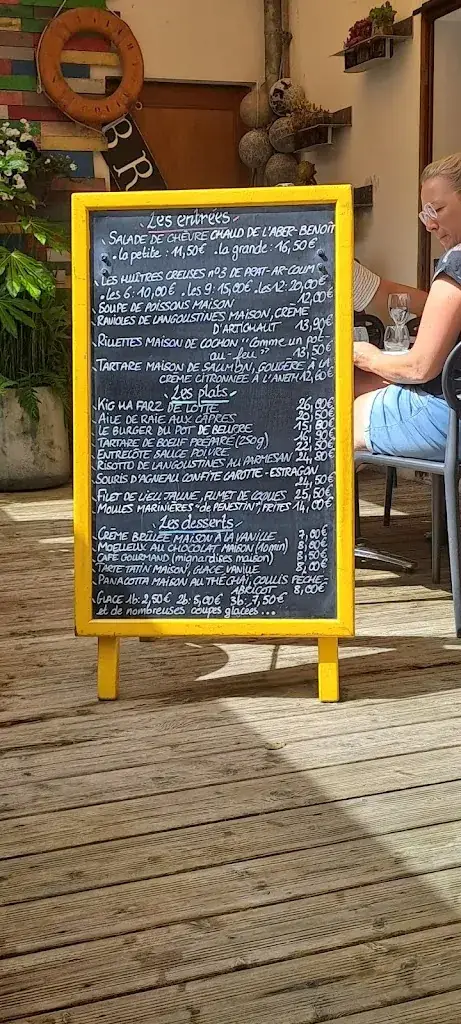 BR
Les entrées
SALADE DE CHÈVRE CHAUD DE L'ABER-BENOÎT
. la petite : 11,50€ . la grande : 16,50€
LES HUÎTRES CREUSES N°3 DE PRAT-AR-COUM
. les 6 : 10,00€ . les 9 : 15,00€ . les 12 : 20,00€
SOUPE DE POISSONS MAISON 12,00€
RAVIOLES DE LANGOUSTINES MAISON, CRÈME
D'ARTICHAUT 13,90€
RILLETTES MAISON DE COCHON "Comme un pot-
au-feu" 13,50€
TARTARE MAISON DE SAUMON, GOUGÈRE À LA
CRÈME CITRONNÉE À L'ANETH 12,60€
Les plats
KIG HA FARZ DE LOTTE 26,00€
AILE DE RAIE AUX CÂPRES
LE BURGER DU POT DE BEURRE
TARTARE DE BOEUF PRÉPARÉ (250g)
ENTRECÔTE SAUCE POIVRE
RISOTTO DE LANGOUSTINES AU PARMESAN 24,80€
SOURIS D'AGNEAU CONFITE CAROTTE-ESTRAGON
24,50€
FILET DE LIEU JAUNE, FUMET DE COQUES 25,50€
MOULES MARINIÈRES "de PÉNESTIN", FRITES 14,00€
Les desserts
CRÈME BRÛLÉE MAISON À LA VANILLE 7,00€
MOELLEUX AU CHOCOLAT MAISON (10min) 8,00€
CAFÉ GOURMAND (mignardises maison) 8,50€
TARTE TATIN MAISON, GLACE VANILLE 8,00€
PANACOTTA MAISON AU THÉ CHAÏ, COULIS PÊCHE-
ABRICOT 8,00€
GLACE 1b: 2,50€ 2b: 5,00€ 3b: 7,50€
et de nombreuses coupes glacées...